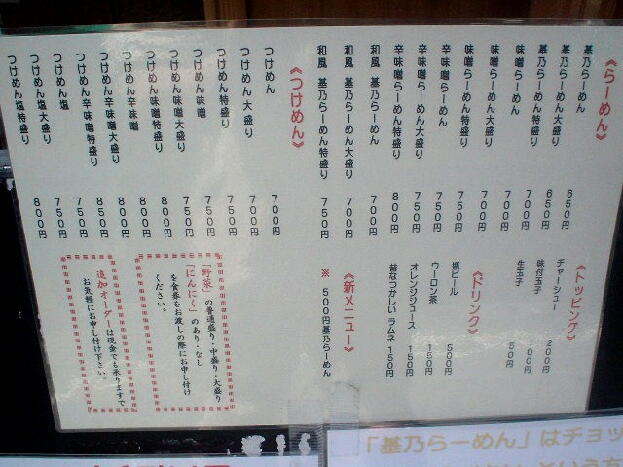 《らーめん》
基乃らーめん 650円
基乃らーめん大盛り 650円
基乃らーめん特盛り 700円
味噌らーめん 700円
味噌らーめん大盛り 700円
味噌らーめん特盛り 750円
辛味噌らーめん 750円
辛味噌らーめん大盛り 750円
辛味噌らーめん特盛り 800円
和風 基乃らーめん 700円
和風 基乃らーめん大盛り 700円
和風 基乃らーめん特盛り 750円
《つけめん》
つけめん 700円
つけめん大盛り 700円
つけめん特盛り 750円
つけめん味噌 750円
つけめん味噌大盛り 750円
つけめん味噌特盛り 800円
つけめん辛味噌 800円
つけめん辛味噌大盛り 800円
つけめん辛味噌特盛り 850円
つけめん塩 750円
つけめん塩大盛り 750円
つけめん塩特盛り 800円
《トッピング》
チャーシュー 200円
味付玉子 100円
生玉子 50円
《ドリンク》
瓶ビール 500円
ウーロン茶 150円
オレンジジュース 150円
昔なつかしい ラムネ 150円
《新メニュー》
※ 500円基乃らーめん
「野菜」の普通盛り・中盛り・大盛り
「にんにく」のあり・なし
を食券をお渡しの際にお申し付け
ください。
追加オーダーは現金でも承りますで
お気軽にお申し付け下さい。
「基乃らーめん」はチョッ